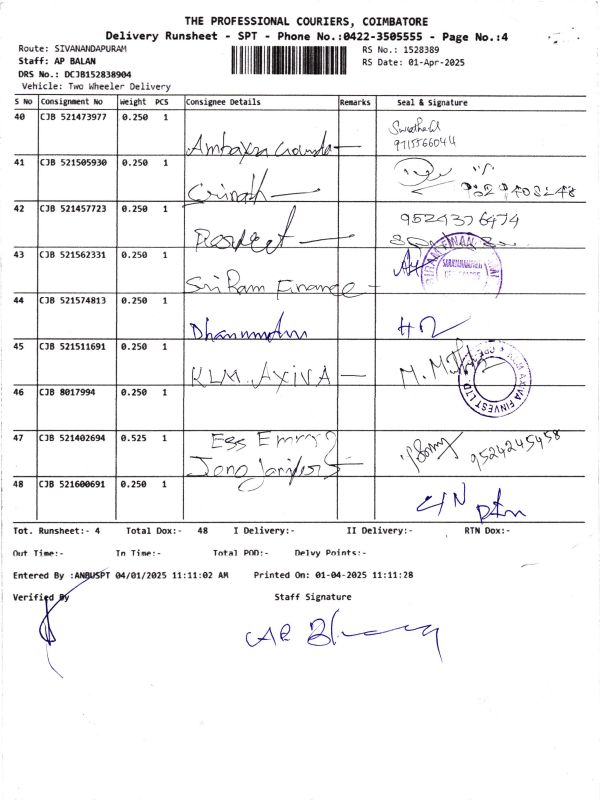 THE PROFESSIONAL COURIERS, COIMBATORE
Delivery Runsheet - SPT - Phone No.:0422-3505555 - Page No.:4
Route: SIVANANDAPURAM
RS No.: 1528389
Staff: AP BALAN
RS Date: 01-Apr-2025
DRS No.: DCJB152838904
Vehicle: Two Wheeler Delivery
S No Consignment No Weight PCS Consignee Details Remarks Seal & Signature
40 CJB 521473977 0.250 1
9715566044
41 CJB 521505930 0.250 1
42 CJB 521457723 0.250 1
9524376474
43 CJB 521562331 0.250 1
Sri Ram Finance
44 CJB 521574813 0.250 1
45 CJB 521511691 0.250 1
KLM AXIVA
KLM AXIVA FINVEST LTD
46 CJB 8017994 0.250 1
47 CJB 521402694 0.525 1
9524245458
48 CJB 521600691 0.250 1
Tot. Runsheet:- 4 Total Dox:- 48 I Delivery:- II Delivery:- RTN Dox:-
Out Time:- In Time:- Total POD:- Delvy Points:-
Entered By :ANBUSPT 04/01/2025 11:11:02 AM Printed On: 01-04-2025 11:11:28
Verified By Staff Signature